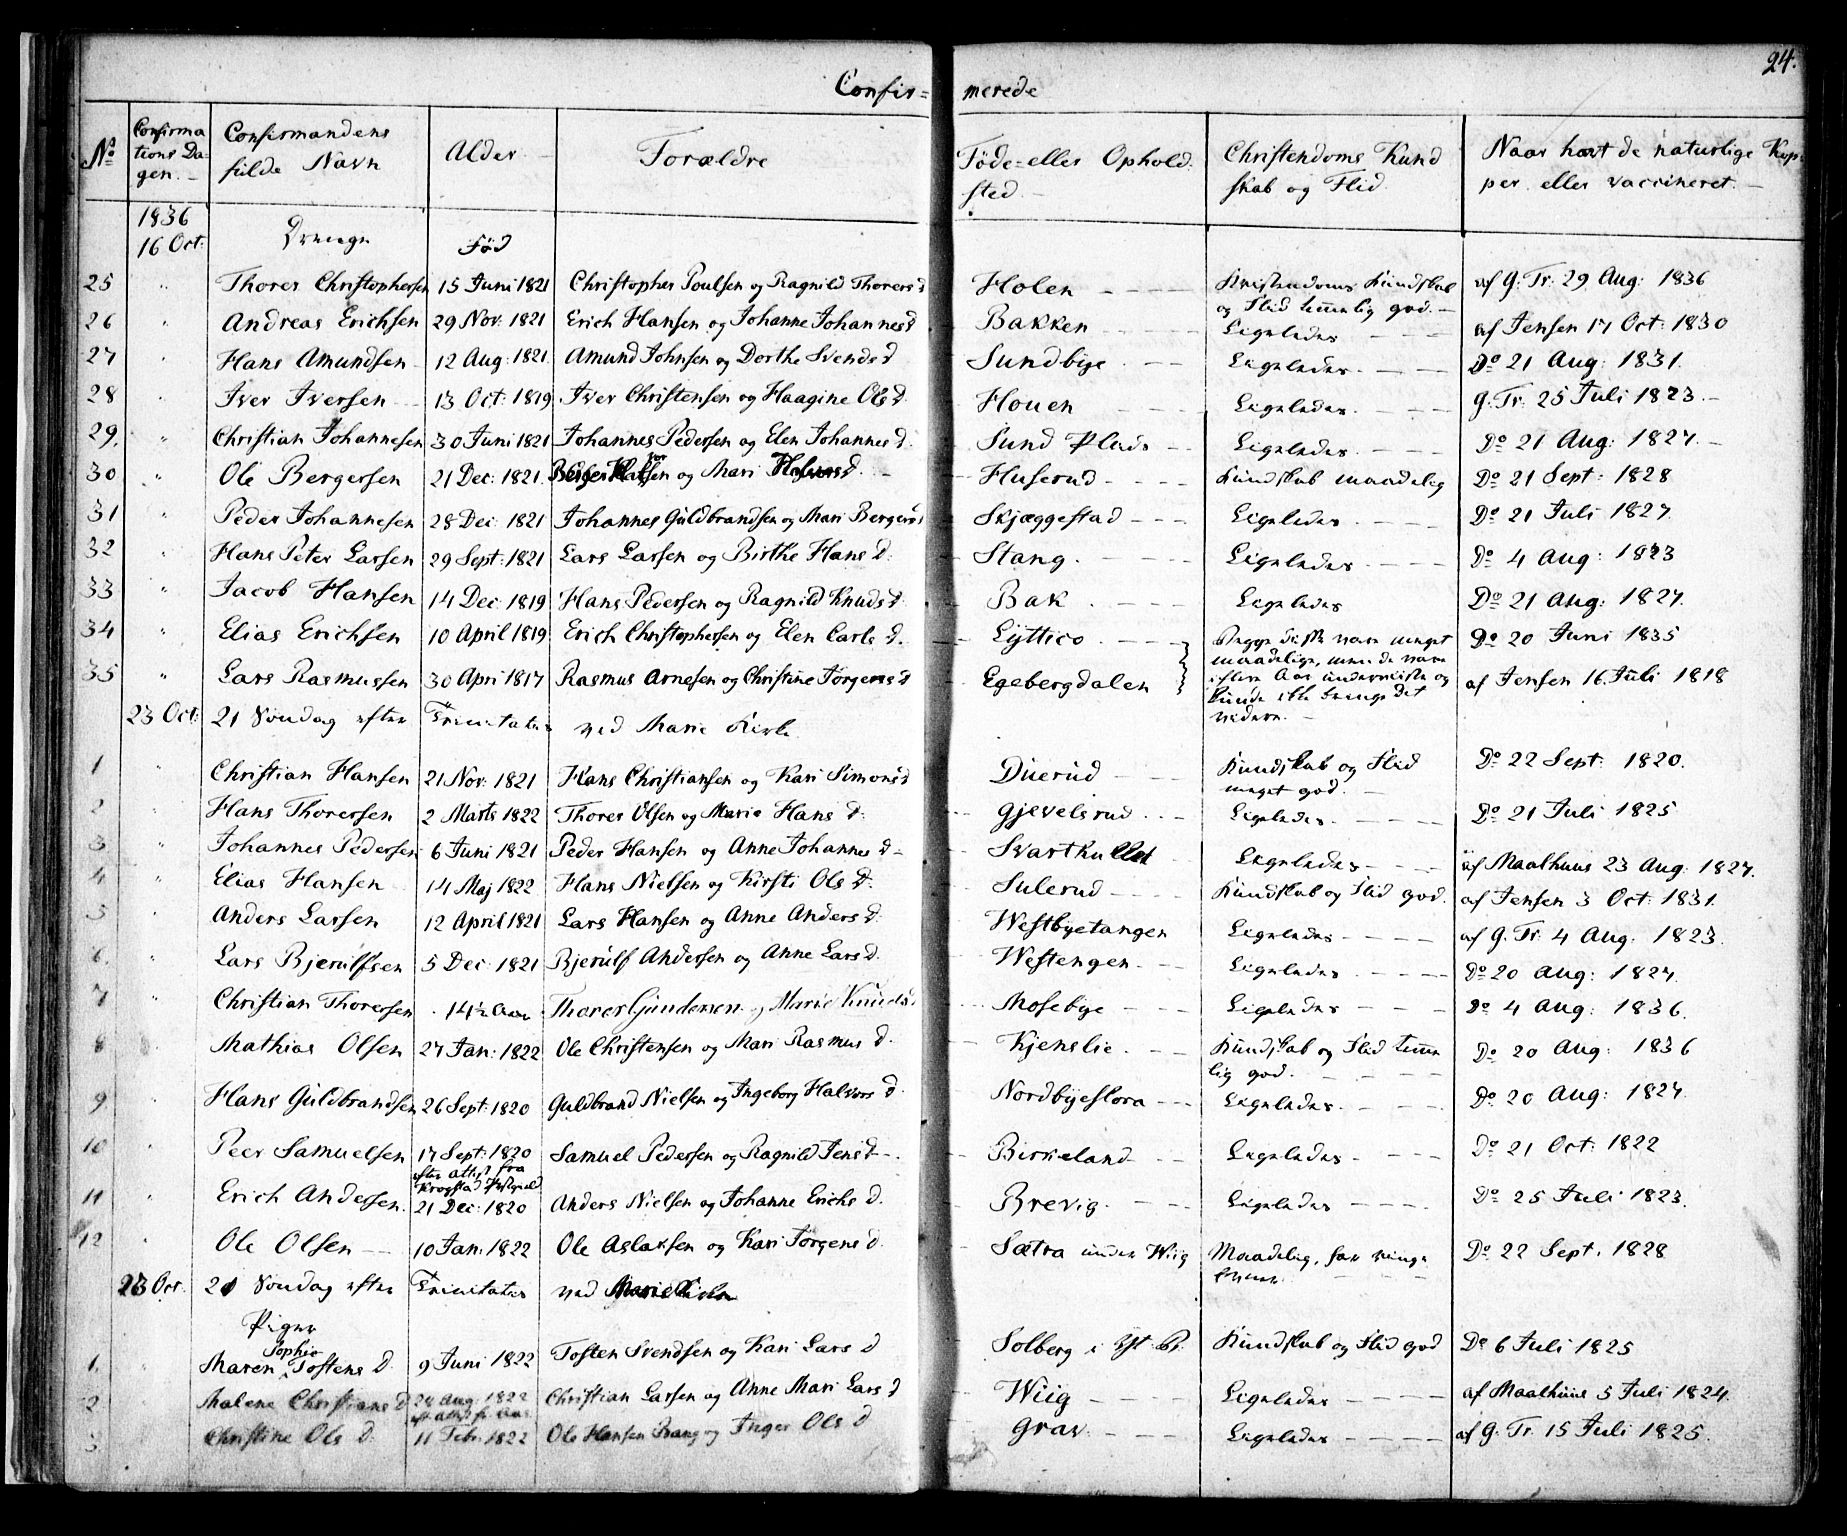 24.
Confir= merede
No
Confirma
tions Da-
gen.
Confirmandens
fulde Navn
Alder
Forældre
Føde- eller Ophold
sted.
Christendoms Kund
skab og Flid
Naar havt de naturlige Kop-
per eller vaccineret.
1836
16 Oct: Drenge Fød
25 " Thorer Christophersen 15 Juni 1821 Christopher Poulsen og Ragnild Thorers d Holen Kristendoms Kundskab af G: Tr: 29 Aug: 1836
og Flid temelig god.
26 " Andreas Erichsen 29 Nov: 1821 Erich Hansen og Johanne Johannesd Bakken Ligeledes af Jensen 17 Oct: 1830
27 " Hans Amundsen 12 Aug: 1821 Amund Johnsen og Dorthe Svends d Sundbye Ligeledes Do 21 Aug: 1831.
28 " Iver Iversen 13 Oct: 1819 Iver Christensen og Haagine Ols d Houen Ligeledes G: Tr: 25 Juli 1823
29. " Christian Johannesen 30 Juni 1821 Johannes Pedersen og Elen Johannes d. Sund Plads Ligeledes Do 21 Aug: 1827.
30 " Ole Bergersen 21 Dec: 1821. og Mari Huserud Kundskab maadelig Do 21 Sept: 1828
31 " Peder Johannesen 28 Dec: 1821 Johannes Guldbrandsen og Mari Bergers d Skjæggestad Ligeledes Do 21 Juli 1827.
32 " Hans Peter Larsen 29 Sept: 1821 Lars Larsen og Birthe Hans d. Stang. Ligeledes Do 4 Aug: 1823
33 " Jacob Hansen 14 Dec: 1819 Hans Pedersen og Ragnild Knuds d Bak Ligeledes Do 21 Aug: 1827.
34 " Elias Erichsen 10 April 1819 Erich Christophersen og Elen Carls d. Lyttico Begge disse vare meget Do 20 Juni 1835
maadelige, men de vare
35 " Lars Rasmussen 30 Apri 1817 Rasmus Arnesen og Christine Jørgens d Egebergdalen i flere Aar underviiste og af Jensen 16 Juli 1818
kunde ikke bringe det
videre.
23 Oct: 21 Søndag efter Trinitatis ved Marie Kirke
1 " Christian Hansen 21 Nov: 1821 Hans Christiansen og Kari Simons d Duerud Kundskab og Flid Do 22 Sept: 1820.
meget god.
2 " Hans Thoresen 2 Marts 1822 Thorer Olsen og Marie Hans d. Gjevelsrud Ligeledes Do 21 Juli 1825
3 " Johannes Pedersen 6 Juni 1821 Peder Hansen og Anne Johannes d Svarthullet Ligeledes af Maalhuus 23 Aug: 1827.
4 " Elias Hansen 14 Maj 1822 Hans Nielsen og Kirsti Ols d. Sulerud Kundskab og Flid god. af Jensen 3 Oct: 1831.
5 " Anders Larsen 12 April 1821 Lars Hansen og Anne Anders d. Westbyetangen Ligeledes af G: Tr: 4 Aug: 1823.
6. " Lars Bjerulfsen 5 Dec: 1821 Bjerulf Andersen og Anne Lars d. Westengen Ligeledes Do 20 Aug: 1827.
7 " Christian Thoresen 14½ Aar Thorer Gundersen og Marie Knuds d Mosebye Ligeledes Do 4 Aug: 1836.
8 " Mathias Olsen 27 Jan: 1822 Ole Christensen og Mari Rasmus d. Kjenslie Kundskab og Flid teme- Do 20 Aug: 1836
lig god.
9 " Hans Guldbrandsen 26 Sept: 1820 Guldbrand Nielsen og Ingeborg Halvors d. Nordbyeflora Ligeledes Do 20 Aug: 1827.
10 " Peer Samuelsen 17 Sept: 1820 Samuel Pedersen og Ragnild Jens d Birkeland Ligeledes Do 21 Oct: 1822
efter Attest fra
Krogstad
11 " Erich Andersen. 21 Dec: 1820 Anders Nielsen og Johanne Erichs d. Brevig Ligeledes Do 25 Juli 1823.
12 " Ole Olsen 10 Jan: 1822 Ole Aslaksen og Kari Jørgens d. Sætra under Wiig Maadelig, har ringe Do 22 Sept. 1828
23 Oct. 21 Søndag efter Trinitatis ved Marie Kirke
Piger
Sophie
1. " Maren Tostens d. 9 Juni 1822 Tosten Svendsen og Kari Lars d Solberg i Kundskab og Flid god Do 6 Juli 1825
2 Malene Christians d 24 Aug 1822 Christian Larsen og Anne Mari Lars d Wiig Ligeledes af Maalhuus 5 Juli 1824.
eft Attest fr Aas
3 Christine Ols d. 11 Febr: 1822 Ole Hansen og Inger Ols d Grav Ligeledes af G: Tr: 15 Juli 1825.